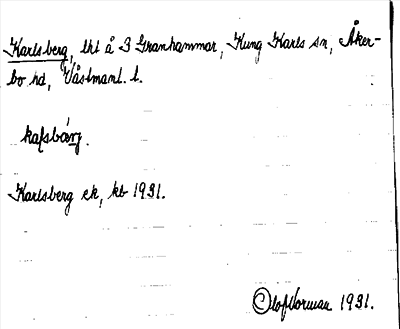 Karlsberg, tht å 3 Granhammar, Kung Karls sn, Åker-
bo hd, Västmanl. l.
kaɭsbárj.
Karlsberg ek, kb 1931.
Olof Norman 1931.